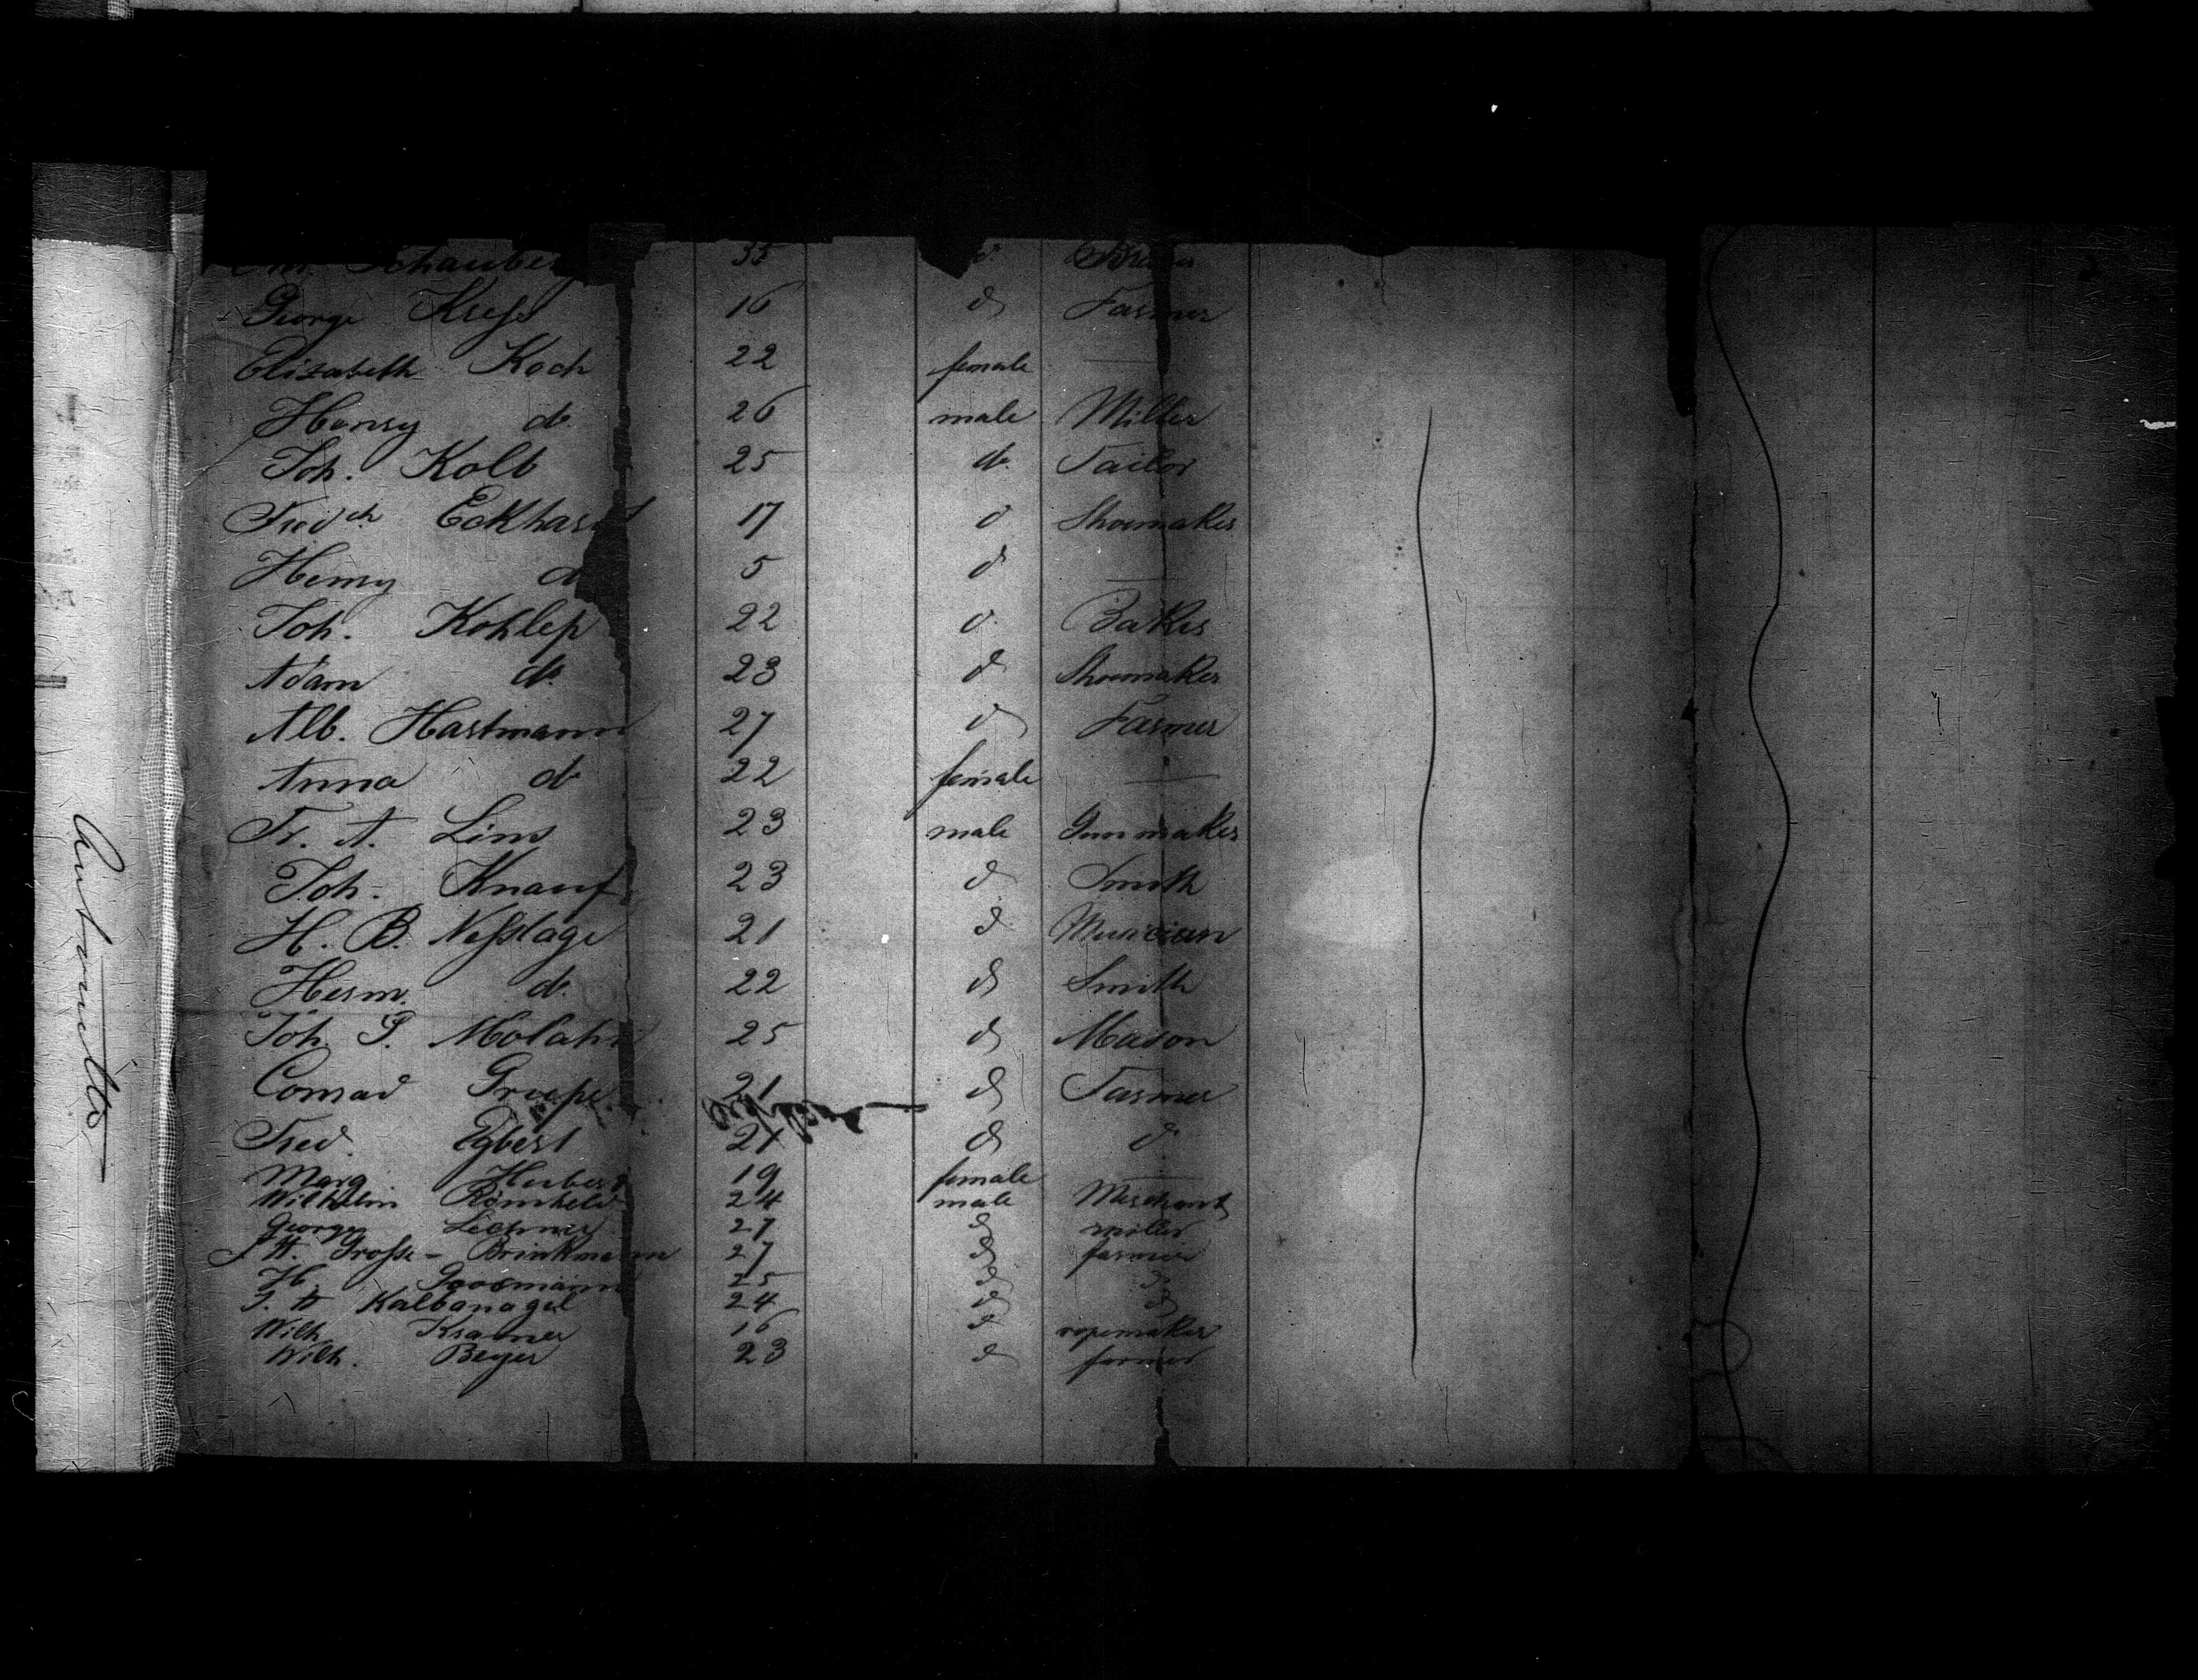 Schauber 35 d
George Kress 16 d Farmer
Elizabeth Koch 22 female —
Henry do 26 male Miller
Joh. Kolb 25 do. Tailor
Fredch Eckhard 17 d Shoemaker
Henry do 5 d —
Joh. Kohlep 22 d Baker
Adam do 23 d Shoemaker
Alb. Hartmann 27 d Farmer
Anna do 22 female —
Fr. A. Lins 23 male Gunmaker
Joh. Knauf 23 d Smith
H. B. Nesslage 21 d Musician
Herm. do. 22 d Smith
Joh. Molahn 25 d Mason
Conrad 21 d Farmer
Fred. Egbert 21 d d
Marg Hubert 19 female —
Wilhelm Römheld 24 male Merchant
George Lechner 27 d miller
J. H. Grosse-Brinkmann 27 d farmer
H. Goosmann 25 d d
J. H Kalbanagel 24 d d
Wilh. Kramer 16 d ropemaker
Wilh. Beyer 23 d farmer